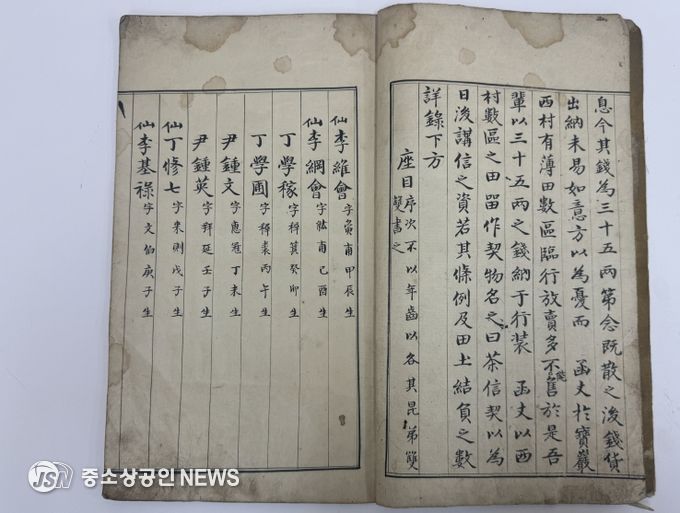 息今其錢為三十五兩第念既散之後錢貨
出納未易如意方以為憂而 函丈於寶巖
西村有薄田數區臨行放賣多不能售於是吾
輩以三十五兩之錢納于行裝 函丈以西
村數區之田留作契物名之曰茶信契以為
日後講信之資若其條例及田土結負之數
詳錄下方
座目 序次不以年齒以各其昆弟雙
雙書之
仙 李維會 字 甫甲辰生
仙 李綱會 字紘甫己酉生
丁學稼 字穉箕癸卯生
丁學圃 字穉裘丙午生
尹鍾文 字惠冠丁未生
尹鍾英 字拜延壬子生
仙 丁修七 字来則戊子生
仙 李基祿 字文伯庚子生
JSN 중소상공인 NEWS